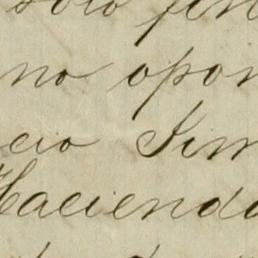 solo fin
no opon
cio Jim
Hacienda